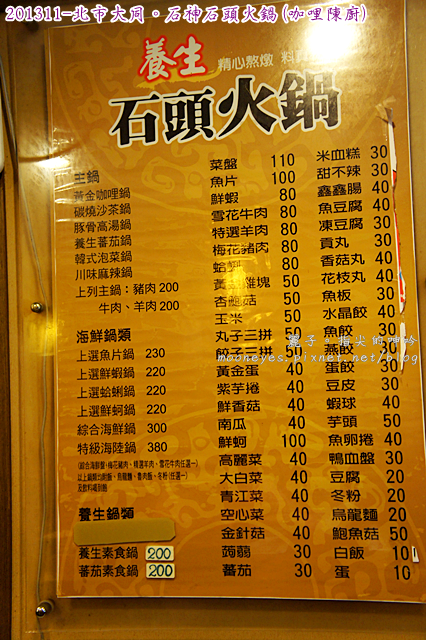 201311-北市大同。石神石頭火鍋(咖哩陳廚)
養生 精心熬燉
石頭火鍋
主鍋
黃金咖哩鍋
碳燒沙茶鍋
豚骨高湯鍋
養生蕃茄鍋
韓式泡菜鍋
川味麻辣鍋
上列主鍋：豬肉 200
牛肉、羊肉 200
海鮮鍋類
上選魚片鍋 230
上選鮮蝦鍋 220
上選蛤蜊鍋 220
上選鮮蚵鍋 220
綜合海鮮鍋 300
特級海陸鍋 380
養生鍋類
養生素食鍋 200
蕃茄素食鍋 200
菜盤 110
魚片 100
鮮蝦 80
雪花牛肉 80
特選羊肉 80
梅花豬肉 80
蛤蜊 80
50
杏鮑菇 50
玉米 50
丸子三拼 50
餃子三拼
黃金蛋 40
紫芋捲 40
鮮香菇 40
南瓜 40
鮮蚵 100
高麗菜 40
大白菜 40
青江菜 40
空心菜 40
金針菇 40
蒟蒻 30
蕃茄 30
米血糕 30
甜不辣 30
鑫鑫腸 40
魚豆腐 40
凍豆腐 30
貢丸 30
香菇丸 40
花枝丸 40
魚板 30
水晶餃 40
魚餃 30
燕餃 30
蛋餃 30
豆皮 30
蝦球 40
芋頭 50
魚卵捲 40
鴨血盤 30
豆腐 20
冬粉 20
烏龍麵 20
鮑魚菇 50
白飯 10
蛋 10
mooneyes.pixnet.net/blog